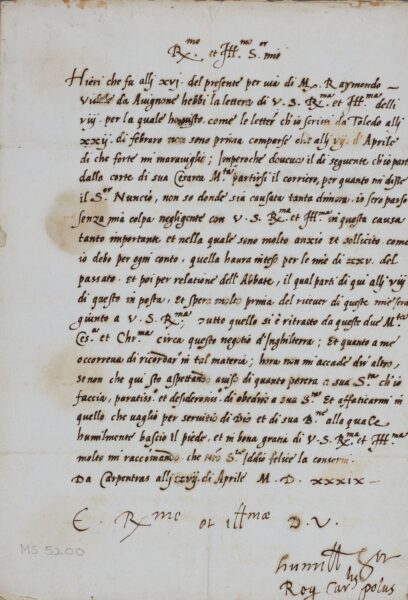 R.mo et Ill.mo S.or mio
Hieri che fu alli xvj. del presente per via di M. Raymondo
da Avignone hebbi la lettera di V. S. R.ma et Ill.ma delli
viij. per la quale ho visto, come le lettere ch'io scrissi da Toledo alli
xxij. di febraro non sono prima comparse che alli vij. d'Aprile
di che forte mi maraviglio; Imperoche doveva il dì seguente ch'io parti
dalla corte di sua Cesarea M.ta partirsi il corriero, per quanto mi disse
il S.or Nuncio, non so donde sia causata tanta dimora. io sero parso
senza mia colpa negligente con V. S. R.ma et Ill.ma in questa causa
tanto importante et nella quale sono molto anxio et sollicito come
io debo per ogni conto, quella havra inteso per le mie di xxv. del
passato. et poi per relatione dell'Abbate, il qual parti di qui alli viij
di questo in posta. et spero molto prima del ricever di queste mie sera
giunto a V. S. R.ma; tutto quello si è ritratto da queste due M.ta
Ces.a et Chr.ma circa questo negotio d'Inghilterra; Et quanto a me
occorreva di ricordar in tal materia; hora non mi accade dir altro,
se non che qui sto aspettando aviso di quanto porera a sua S.ta ch'io
faccia, paratiss.o et desideroso di obedire a sua S.ta et affaticarmi in
quello che vaglio per servitio di Dio et di sua B.ne alla quale
humilmente bascio il piede. et in bona gratia di V. S. R.ma et Ill.ma
molto mi raccomando. che Iddio felice la conservi.
Da Carpentras alli xvij. di Aprile M. D. XXXIX –
E. R.mae et Ill.mae D. V.
humill. Ser
Reg Car.lis polus
MS 5200